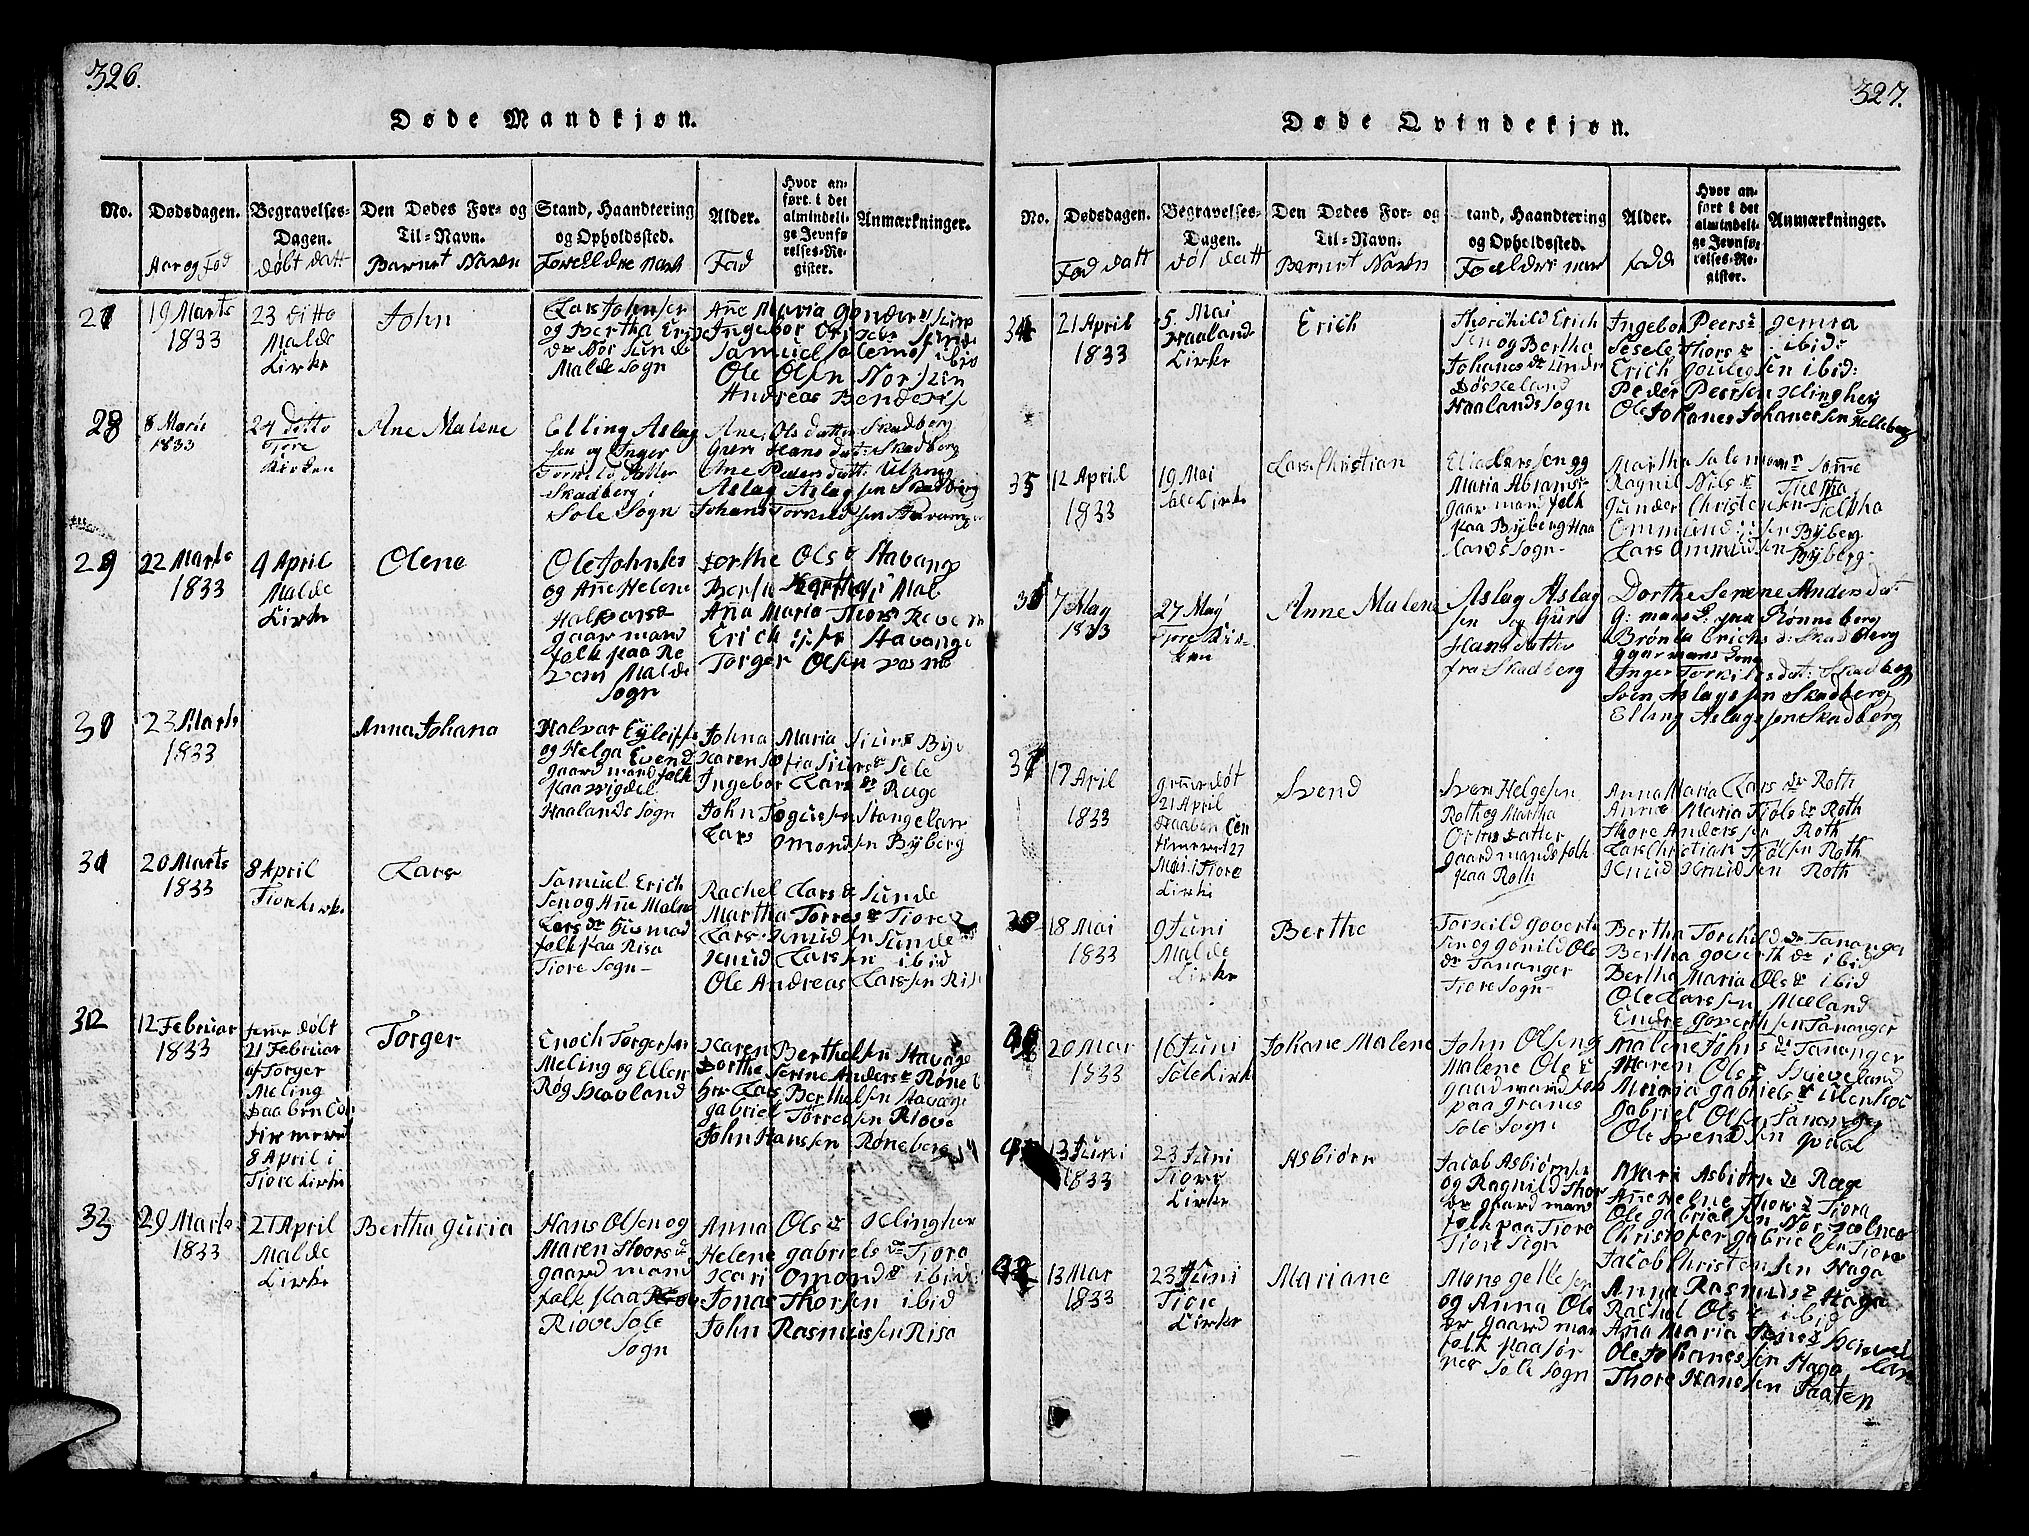 326.
Døde Mandkjøn.
No.
Dødsdagen.
Aar og Fød
Begravelses-
Dagen.
døbt datt
Den Dødes For- og
Til-Navn.
Barnet Navn
Stand, Haandtering
og Opholdssted.
Forelldre navn
Alder.
Fad
Hvor an-
ført i det
almindeli-
ge Jevnfø-
relses-Re-
gister.
Anmærkninger.
27
19 Marts
1833
23 ditto
Malde
Kirke
John
Lars Johnsen
og Bertha Erigs
dr Nor Sunde
Malde Sogn
Añe Maria
Ingebor
Samuel Salemos ibid
Ole Olsen
Andreas
28
8 Marts
1833
24 ditto
Tjore
Kirken
Ane Malene
Elling Aslag
sen og Inger
Torkilds Datter
Skadberg i
Sole Sogn
Ane Ols datter Skadberg
Guri Hans dat: Skadberg
Ane Peders datt: Uthoug
Aslag Aslagsen Skadberg
Johans Torkildsen Stavanger
29
22 Marts
1833
9 April
Malde
Kirke
Olene
Ole Johnsen
og Añe Helene
Halvors dr
gaar mand
folk paa Re
vem Malde
Sogn
Dorthe Ols dr Stavang
Aña Maria Thors Revem
Torger Olsen
30
23 Marts
1833
Anna Johana
Halvar Eyleifs
og Helga Evend
gaard mand folk
paa Vigdel
Haalands Sogn
Johna Maria Siurs Bÿb
Karen Sofia Siurs dr Sele
Ingebor Lars dr Rege
John Togersen Stangelan
Lars Omondsen Bÿberg
31
20 Marts
1833
8 April
Tiore Kirke
Lars
Samuel Erich
sen og Añe Malne
Lars dr Husmad
folk paa Risa
Tiore Sogn
Rachel Lars dr Sunde
Martha Torres dr Tiore
Lars Knudsen Sunde
Knud Larsen ibid
Ole Andreas Larssen Risa
32
12 Februar
1833
hjeme døbt
21 Februar
af Torger
Meling
Daaben Con
firmered
8 April i
Tiore Kirke
Torger
Enoch Torgersen
Meling og Ellen
Røg Havland
Karen Berthelsen Stavange
Dorthe Serine Anders dr Røneb
Her Lars Berthelsen Stavage
Gabriel Tørresen Riove
John Hanssen Røneberg
33
29 Marts
1833
21 April
Malde
Kirke
Bertha Guria
Hans Olsen og
Maren Thors dr
gaard mand
folk paa
Riove Sole
Sogn
Anna Ols dr Klingher
Helene Gabriels dr Tiora
Kari Omonds dr ibid
Jonas Thorsen ibid
John Rasmusen Risa
327.
Døde Qvindekjøn.
No.
Dødsdagen.
Fød datt
Begravelses-
Dagen.
døb datt
Den Dødes For- og
Til-Navn.
Barnet Navn
tand, Haandtering
og Opholdssted.
Foreldre nav
Alder.
fadd
Hvor an-
ført i det
almindeli-
ge Jevnfø-
relses-Re-
gister.
Anmærkninger.
34
21 April
1833
5. Mai
Haalands
Kirke
Erich
Thorchild Erich
sen og Bertha
Johanes dr Sunde
Døskeland
Haalands Sogn
Ingebor Peers dr Gemra
Sesele Thors dr ibid:
Erich Goulegsen ibid:
Peder Peersen Klinghey
Ole Johanes Johanessen Helleberg
35
12 April
1833
19 Mai
Sole Kirke
Lars Christian
Elias Larsen og
Maria Abrams dr
gaar mand folk
paa Bÿberg Haa
lands Sogn
Martha Salemons dr Søme
Ragnil Nils dr Tielta
Gunder Christensen Tieltha
Ommundsen Bÿberg
Lars Ommundsen Bÿberg
36
7 May
1833
27 May
Tjore Kir-
ken
Anne Malene
Aslag Aslag
sen og Guro
Hans datter
fra Skadberg
Dorthe Serene Anders da:
G: mans L: paa Rønneberg
Brønla Erichs d: Skadberg
gaar mans kone
Inger Torkilds dat: Skadberg
Sven Aslagssen Skadberg
Elling Aslagssen Skadberg
37
17 Aril
1833
21 April
Daaben Con
firmeret 27
Mai i Tiore
Kirke
Svend
Sven Helgesen
Roth og Martha
Orms datter
gaard mands folk
paa Roth
Anna Maria Lars dr Roth
Anne Maria Tiøls dr Roth
Thore Andersen Roth
Lars Christian Tiølsen Roth
Knud Knudsen Roth
18 Mai
1833
9 Juni
Malde
Kirke
Berthe
Torkild Goverts
sen og Gønild Ole
dr Tananger
Tiore Sogn
Bertha Torchilds dr Tananger
Bertha Goverth dr ibid
Bertha Maria Ols dr ibid
Ole Larssen Meland
Endre Goverthsen Tananger
20 Mar
1833
16 Juni
Sole Kirk
Johane Malene
John Olsen og
Malene Ols dr
gaard mand folk
paa Granes
Sole Sogn
Malene Johns dr Tananger
Maren Ols dr Byeveland
Maria Gabriels dr
Gabriel Olsen Tananger
Ole Svendsen
13 Juni
1833
23 Juni
Tiore
Kirke
Asbiørn
Jacob Asbiørnsen
og Ragnild Thor
dr gaard mand
folk paa Tiore
Tiore Sogn
Mari Asbiørns dr Rege
Añe Helne Thors dr Tiora
Ole Gabrielsen
Christofer Gabrielsen Tiore
Jacob Christensen Haga
13 Mar
1833
23 Juni
Tiore
Kirke
Mariane
Mons Gellesen
og Anna Ols
dr gaard man
folk paa Jør
nes Sole Sogn
Anna Rasmus dr Haga
Rachel Ols dr ibid
Aña Maria
Ole Johanessen Haga
Thore Hanssen Jaaten